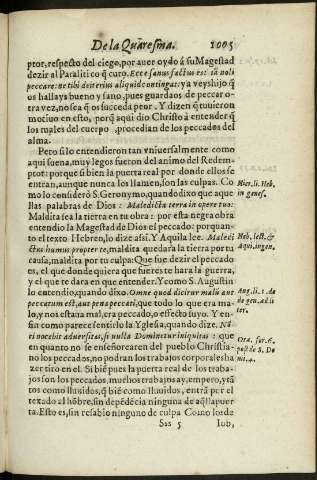 De la Quaresma. 1005
ptor, respesto del ciego, por auer oydo à su Magestad
dezir al Paralitico q̃ curo. Ecce sanus factus es: iã noli
peccare: ne tibi deterius aliquid contingat: ya veys hijo q̃
os hallays bueno y sano, pues guardaos de peccar o-
tra vez, no sea q̃ os succeda peor. Y dizen q̃ tuuieron
motiuo en esto, porq̃ aqui dio Christo à entender q̃
los males del cuerpo, procedian de los peccados del
alma.
Pero si lo entendieron tan vniuersalmente como
aqui suena, muy legos fueron del animo del Redem-
ptor: porque si bien la puerta real por donde ellos se
entran, aunque nunca los llamen, son las culpas. Co
mo lo consideró S. Geronymo, quando dixo que aque
llas palabras de Dios: Maledicta terra in opere tuo:
Maldita sea la tierra en tu obra: por esta negra obra
entendio la Magestad de Dios el peccado: porquan-
to el texto Hebreo, lo dize assi. Y Aquila lee. Maledi
cta humus propter te, maldita quedarà la tierra por tu
causa, maldita por tu culpa: Que fue dezir el peccado
es, el que donde quiera que fueres te hara la guerra,
y el que te dara en que entender. Y como S. Augustin
lo entendio, quando dixo. Omne quod dicitur malũ aut
peccatum est, aut pena peccati, que todo lo que era ma-
lo, y nos estaua mal, era peccado, o efecto suyo. Y en-
sin como parece sentirlo la Yglesia, quando dize. Ni
si nocebit aduersitas, si nulla Dominetur iniquitas: que
en quanto no se enseñorearen del pueblo Christia-
no los peccados, no podran los trabajos corporales ha
zer tiro en el. Si biẽ pues la puerta real de los traba-
jos son los peccados, muchos trabajos ay, empero, y tã
tos como llouidos, q̃ biẽ como llouidos, entrã por el
texado al hõbre, sin depẽdẽcia ninguna de aq̃lla puer
ta. Esto es, sin resabio ninguno de culpa Como los de
Sss 5 Iob,
Hier. li. Heb.
in genes.
Heb. lect. &
Aqui. in gen.
Aug. li. 1. de
gen. ad li
ter.
Ora. fer. 6.
post de S. Do
mi. 4.